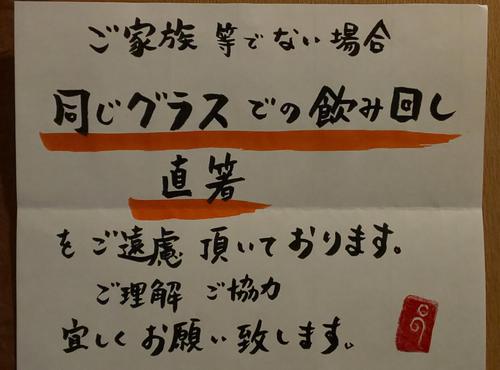 ご家族 等でない場合
同じグラスでの飲み回し
直箸
をご遠慮 頂いております。
ご理解 ご協力
宜しくお願い致します。